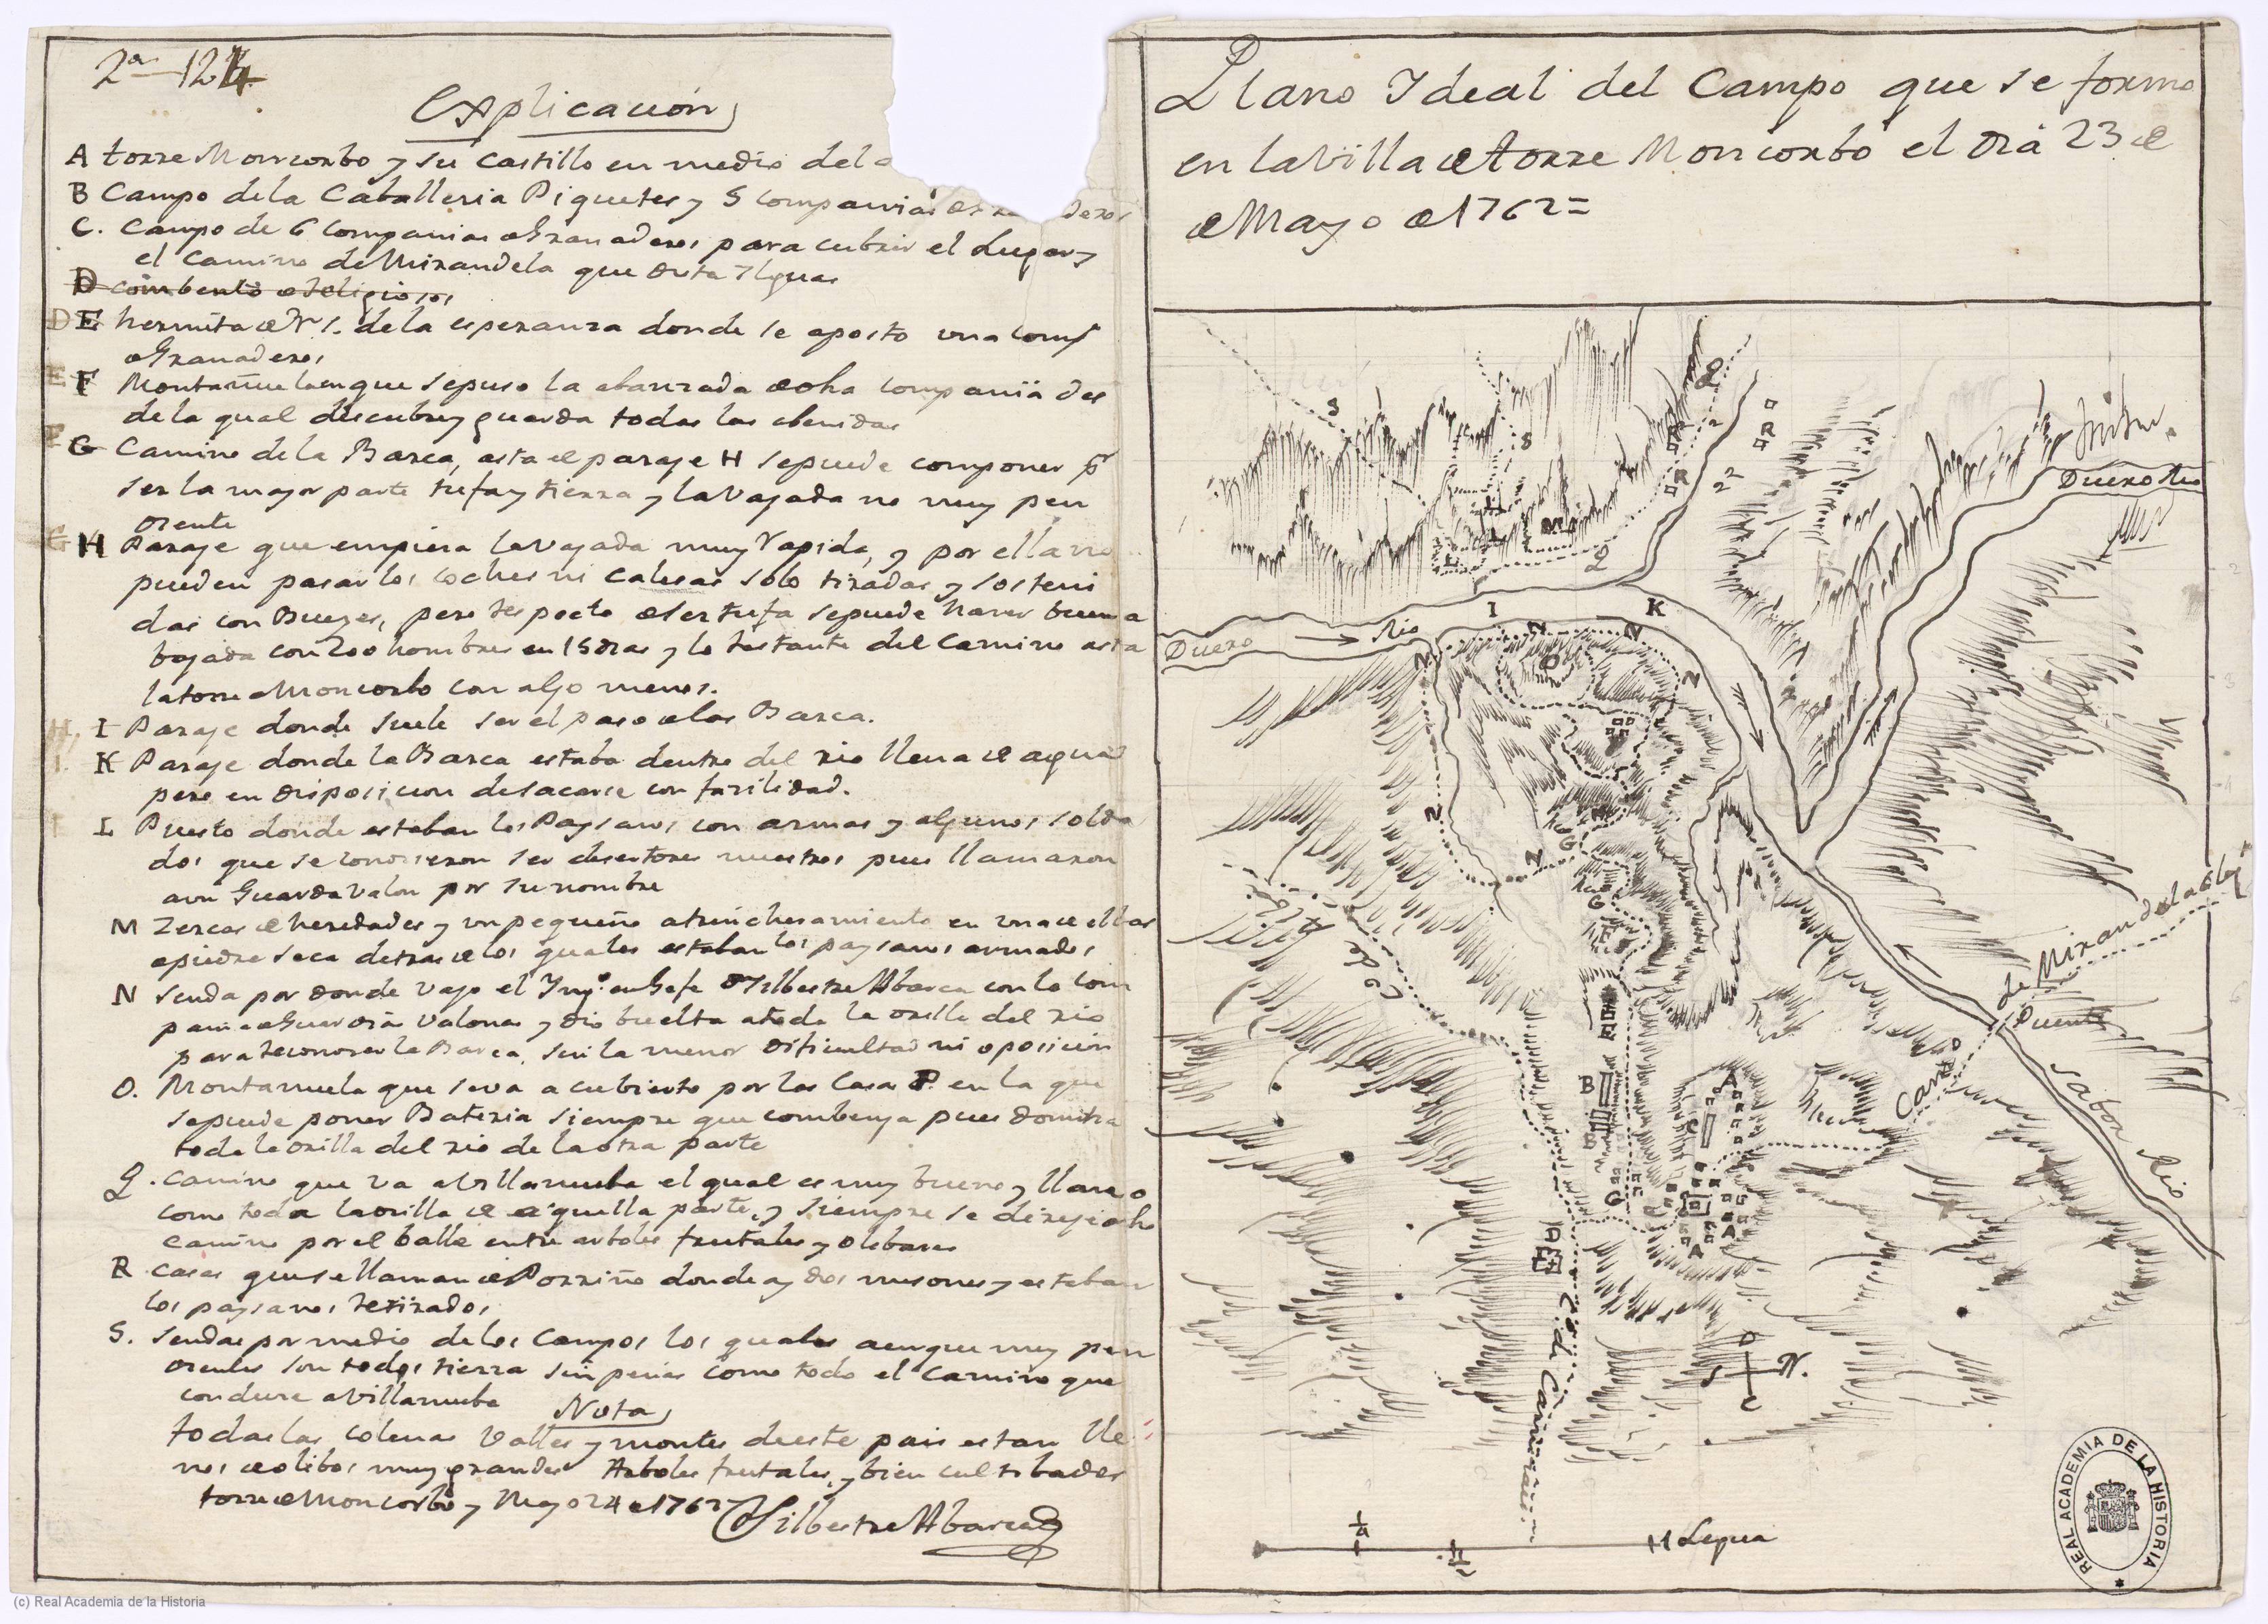 2ª 124
Explicación
A torre Moncorbo y su Castillo en medio del a
B Campo dela Caballeria Piquetes y 5 companias
C. Campo de 6 Companias de Granaderos para cubrir el Lugar y
el Camino de Mirandela que dista 7 leguas
D combento de religiosos
D E hermita de N. S. de la esperanza donde se aposto una comp
de Granaderos
E F Montañuela en que sepuso la abanzada de dha compania des
de la qual descubre y guarda todas las abenidas
F G Camino de la Barca, asta el paraje H sepuede componer pr
ser la mayor parte tufa y tierra y la Vajada no muy pen
diente
G H Paraje que empieza la Vajada muy Rapida, y por ella no
pueden pasar los coches ni Calesas solo tiradas y sosteni
das con Bueyes, pero respecto de ser tufa sepuede hacer buena
bajada con 200 hombres en 15 dias y lo restante del Camino asta
la torre Moncorbo con algo menos.
H. I Paraje donde suele ser el paso de las Barca.
I. K Paraje donde la Barca estaba dentro del rio llena de agua
pero en disposicion de sacarse con facilidad.
L Puesto donde estaban los Paysanos con armas y algunos solda
dos que se conocieron ser desertores nuestros pues llamaron
a un Guardia Valon por su nombre
M Zercas de heredades y un pequeño atrincheramiento en una de ellas
de piedra seca detras de los quales estaban los paysanos armados
N Senda por donde vajo el Ing.º en Gefe Dn Silbestre Abarca con la com
pania de Guardia Valonas y dio buelta a toda la orilla del rio
para reconocer la Barca, sin la menor dificultad ni oposicion
O. Montanuela que se va a cubierto por las Casas P. en la que
sepuede poner Bateria siempre que combenga pues domina
toda la orilla del rio de la otra parte
Q. Camino que va a Villanueba el qual es muy bueno y llano
como toda la orilla de aquella parte, y siempre se dirige dho
camino por el balle entre arboles frutales y olibares
R casas que se llaman de Porriño donde ay dos mesones y estaban
los paysanos retirados
S. Sendas por medio de los Campos los quales aunque muy pen
dientes son todos tierra sin penas como todo el Camino que
conduce a Villanueba
Nota
todas las colinas Valles y montes de este pais estan lle
nos de olibos muy grandes Arboles frutales, y bien cultibados
torre de Moncorbo y Mayo 24 de 1762
Silbestre Abarca
Plano Ideal del Campo que se formo
en la Villa de torre Moncorbo el dia 23 de
de Mayo de 1762=
S
S
Q
R
R
R
Q
L
L
M
Q
Duero Rio
Duero
Rio
I
K
N
N
N
N
N
N
O
P
G
G
F
B
B
C
A
A
A
G
D
E
Co de
de Mirandela
Puente
Camº
Sabor Rio
Cº de
O
S
N.
E
1/4
1/2
1 Legua
REAL ACADEMIA DE LA HISTORIA
(c) Real Academia de la Historia